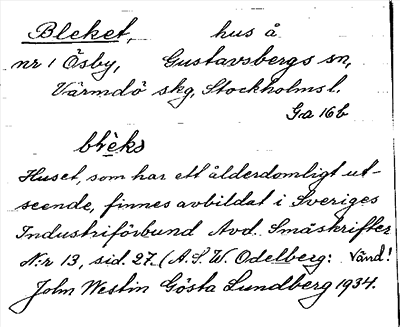 Bleket, hus å
nr 1 Ösby, Gustavsbergs sn,
Värmdö skg, Stockholms l.
Ga 16b
blèks
Huset, som har ett ålderdomligt ut-
seende, finnes avbildat i Sveriges
Industriförbund Avd. Småskrifter
N:r 13, sid. 27. (A.S.W. Odelberg: Vänd!
John Westin Gösta Lundberg 1934.